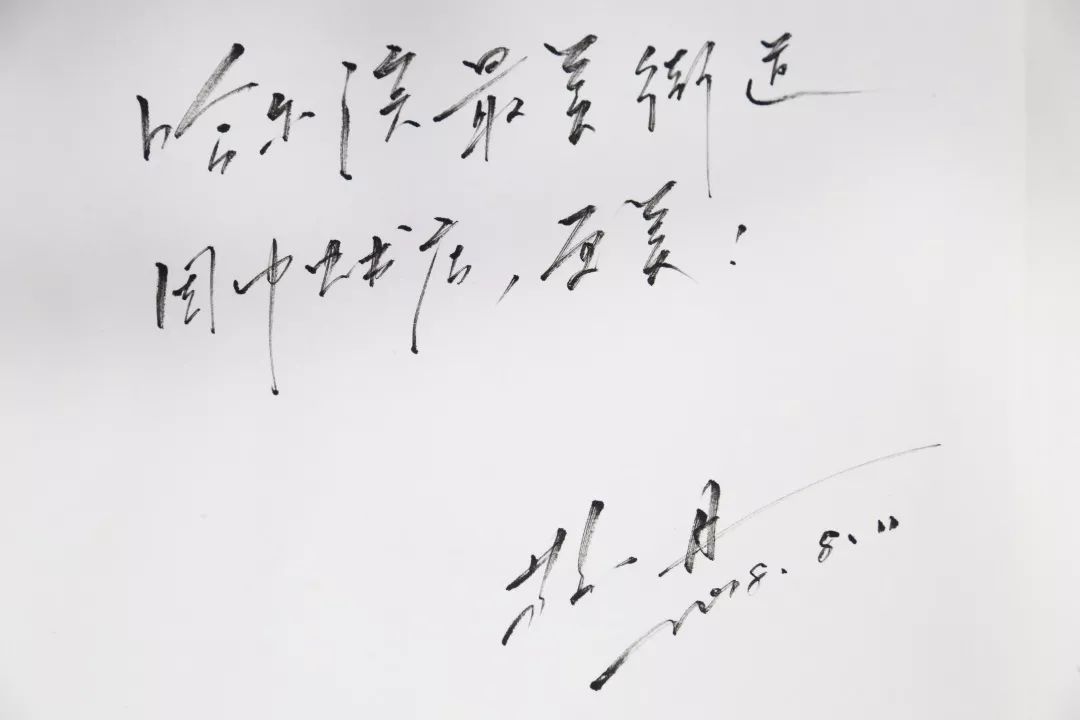 哈尔滨最美街道
因中央书店,更美!
丹
2018.8.11